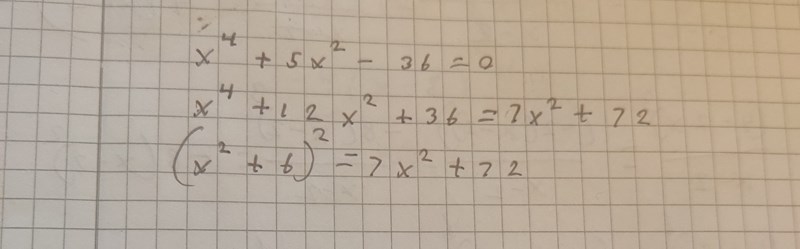 x⁴ + 5x² - 36 = 0
x⁴ + 12x² + 36 = 7x² + 72
(x² + 6)² = 7x² + 72